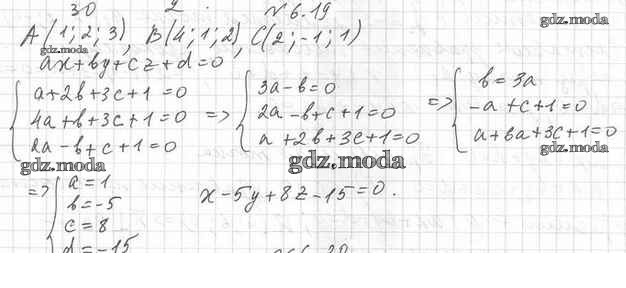 30 2 . №6.19
gdz.moda
A(1; 2; 3), B(4; 1; 2), C(2; -1; 1)
gdz.moda
ax+by+cz+d=0
a+2b+3c+1=0
4a+b+3c+1=0
2a-b+c+1=0
=>
3a-b=0
2a-b+c+1=0
a+2b+3c+1=0
=>
b=3a
-a+c+1=0
a+6a+3c+1=0
gdz.moda
gdz.moda
gdz.moda
=>
a=1
b=-5
c=8
d=-15
x-5y+8z-15=0.